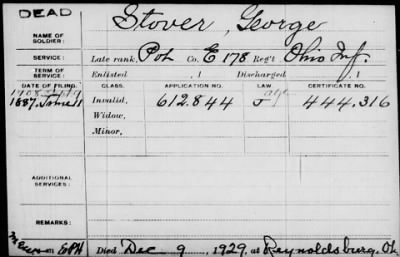 DEAD
NAME OF SOLDIER: Stover, George
SERVICE: Late rank, Pvt Co. E 178 Reg't Ohio Inf.
TERM OF SERVICE: Enlisted , 1 Discharged , 1
DATE OF FILING. CLASS. APPLICATION NO. LAW CERTIFICATE NO.
1887. June 11 Invalid, 612.844 444.316
Widow,
Minor,
ADDITIONAL SERVICES:
REMARKS:
Died Dec 9, 1929, at Reynoldsburg. Oh